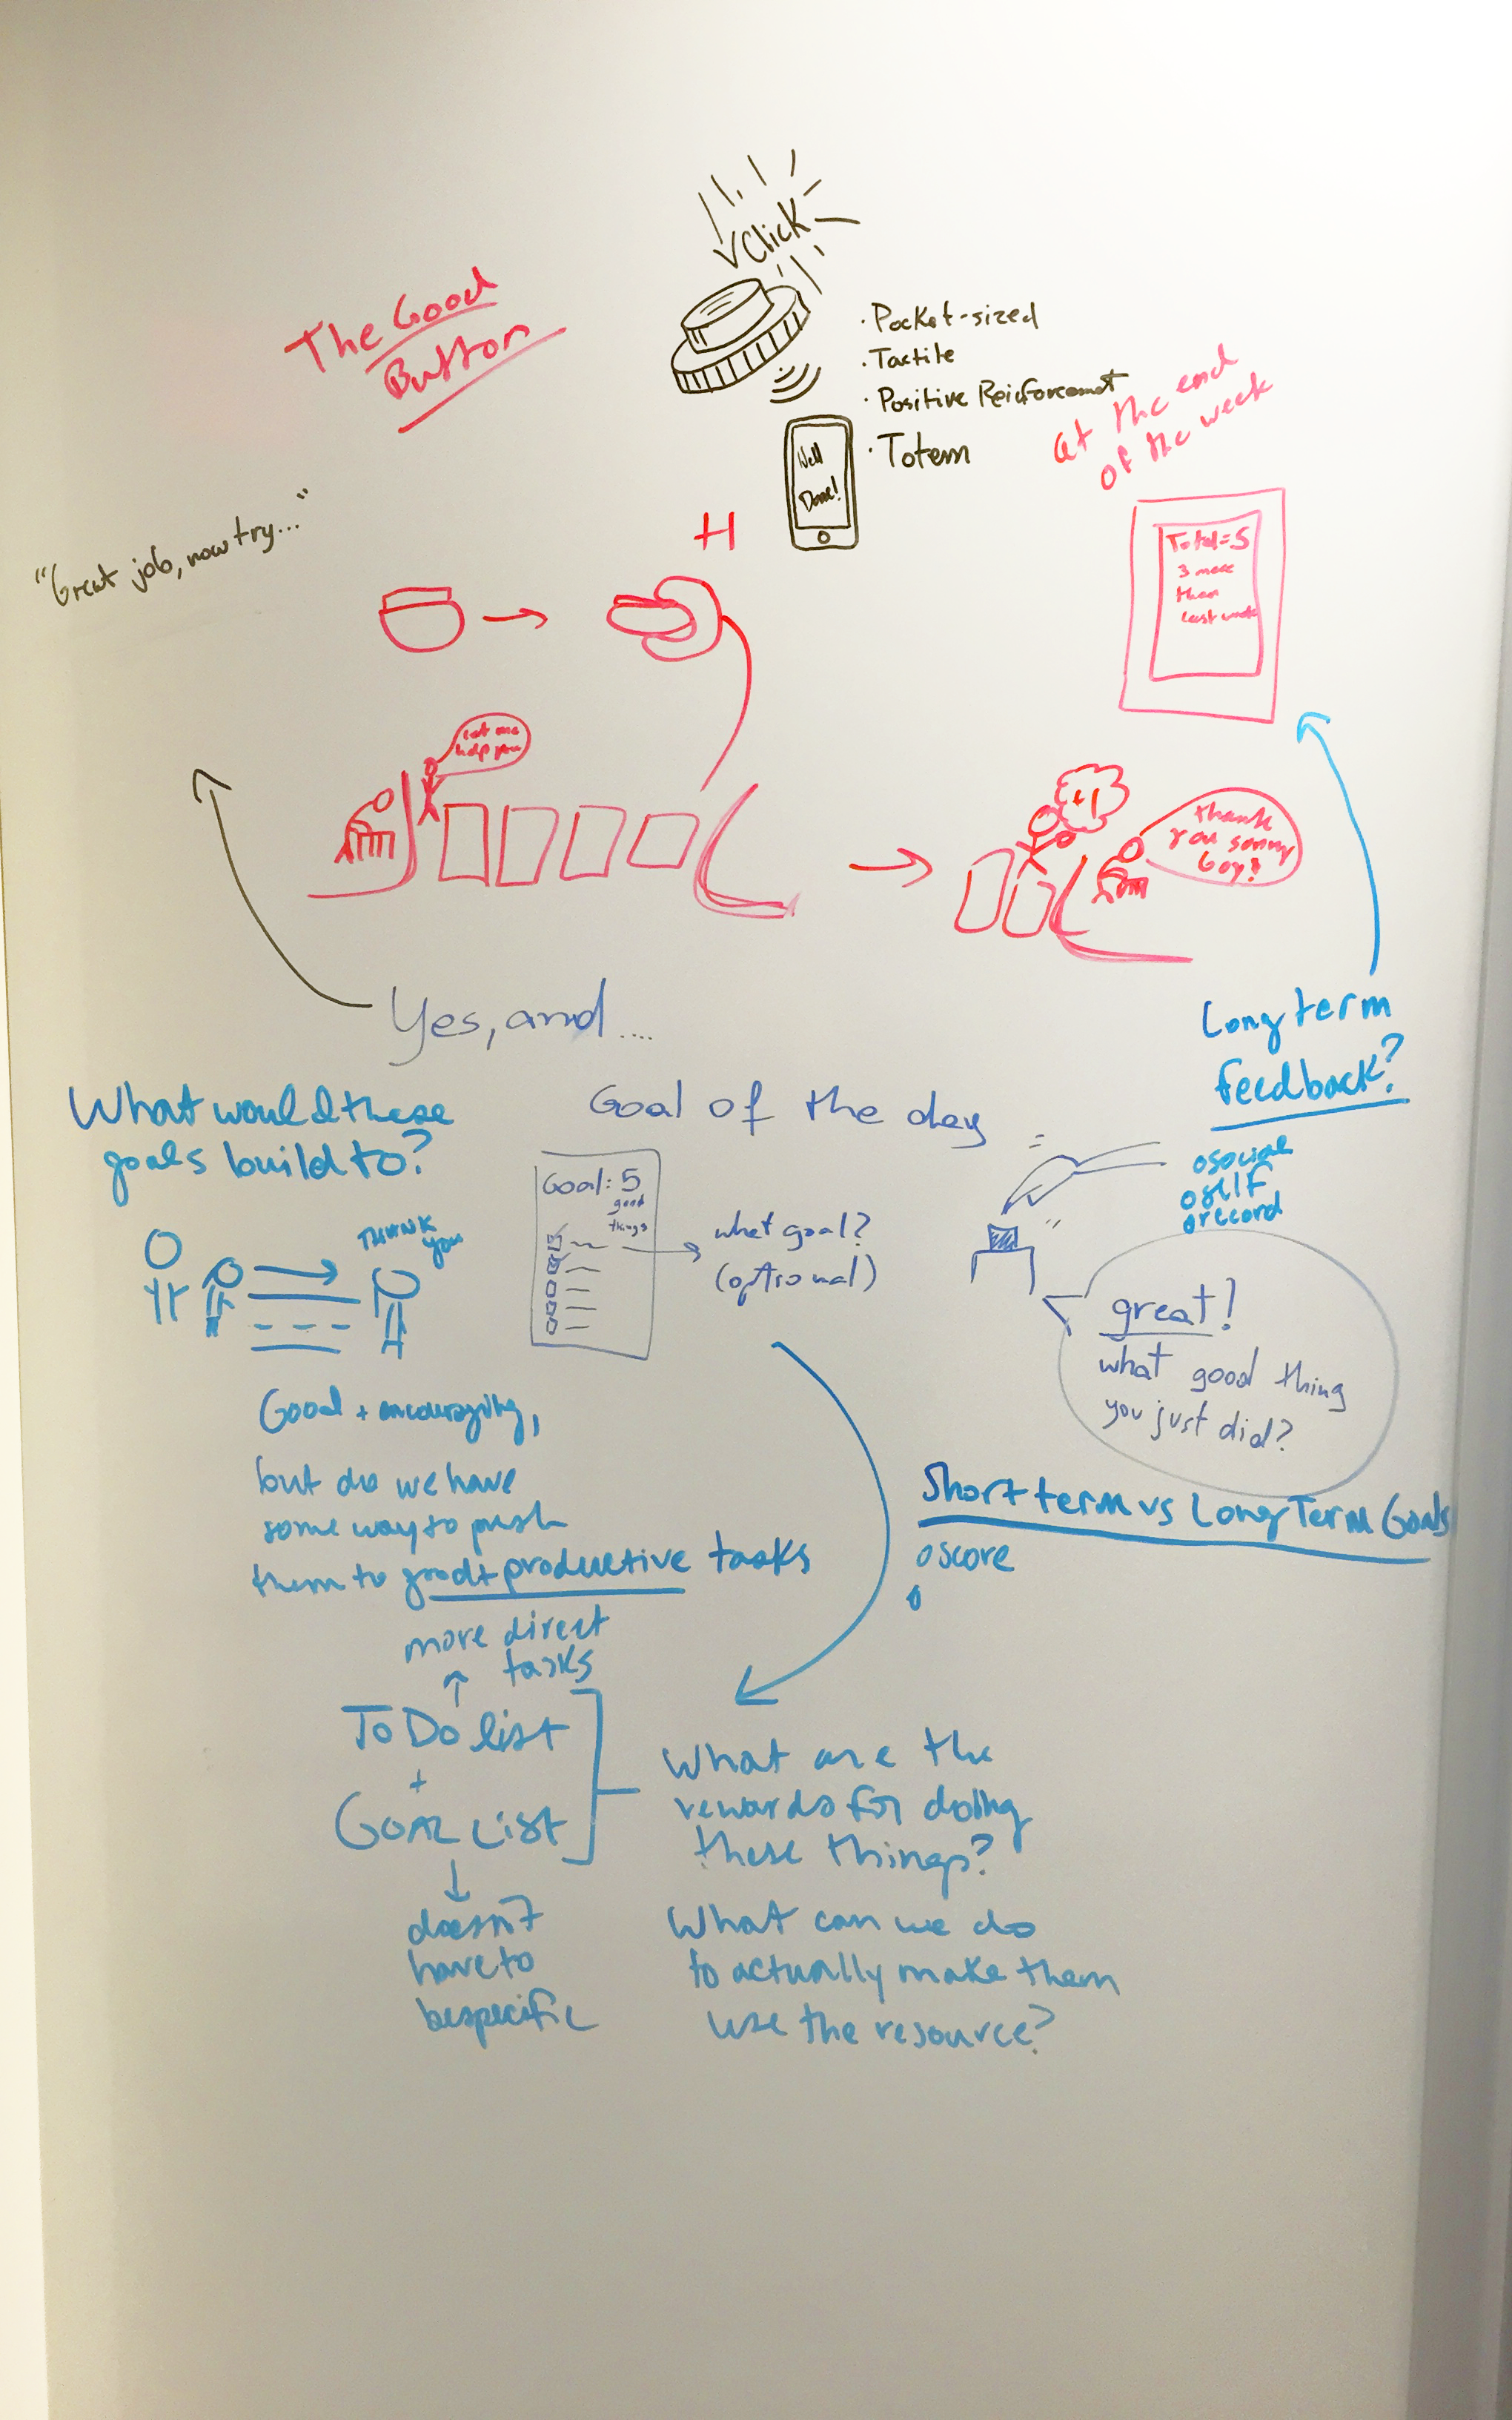 Click
The Good
Button
· Pocket-sized
· Tactile
· Positive Reinforcement
· Totem
Well
Done!
at the end
of the week
Total=5
3 more
than
last week
"Great job, now try..."
H
Let me
help you
+1
thank
you sonny
boy!
Yes, and ....
Long term
feedback?
o social
o self
o record
What would these
goals build to?
THANK
you
Goal of the day
Goal: 5
good
things
what goal?
(optional)
great!
what good thing
you just did?
Good + encouraging,
but do we have
some way to push
them to good+productive tasks
Short term vs Long Term Goals
o score
o
more direct
tasks
To Do list
+
Goal List
doesn't
have to
be specific
What are the
rewards for doing
these things?
What can we do
to actually make them
use the resource?